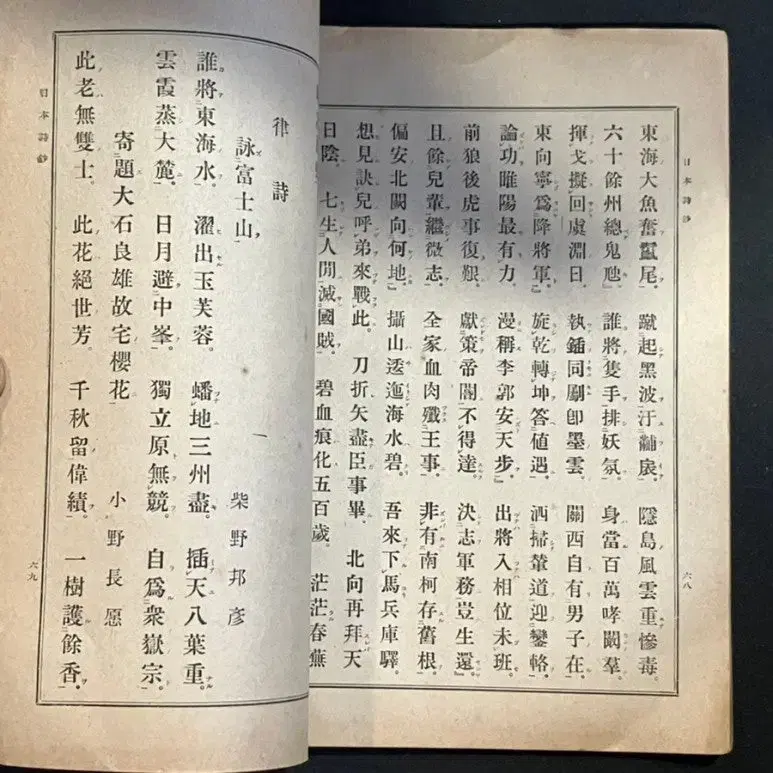 日本詩鈔
東海大魚奮鬣尾。 蹴起黑波汙黼扆。 隱島風雲重慘毒。
六十餘州總鬼虺。 誰將隻手排妖氛。 身當百萬哮闞羣。
揮戈擬回虞淵日。 執鍤同劚卽墨雲。 關西自有男子在。
東向寧爲降將軍。 旋乾轉坤答値遇。 洒掃輦道迎鑾輅。
論功睢陽最有力。 漫稱李郭安天步。 出將入相位未班。
前狼後虎事復艱。 獻策帝閽不得達。 決志軍務豈生還。
且餘兒輩繼微志。 全家血肉殲王事。 非有南柯存舊根。
偏安北闕向何地。 攝山逶迤海水碧。 吾來下馬兵庫驛。
想見訣兒呼弟來戰此。 刀折矢盡臣事畢。 北向再拜天
日陰。 七生人閒滅國賊。 碧血痕化五百歲。 茫茫春蕪
六八
律詩
詠富士山 柴野邦彥
誰將東海水。 濯出玉芙蓉。 蟠地三州盡。 插天八葉重。
雲霞蒸大麓。 日月避中峯。 獨立原無競。 自爲衆嶽宗。
寄題大石良雄故宅櫻花 小野長愿
此老無雙士。 此花絕世芳。 千秋留偉績。 一樹護餘香。
日本詩鈔
六九